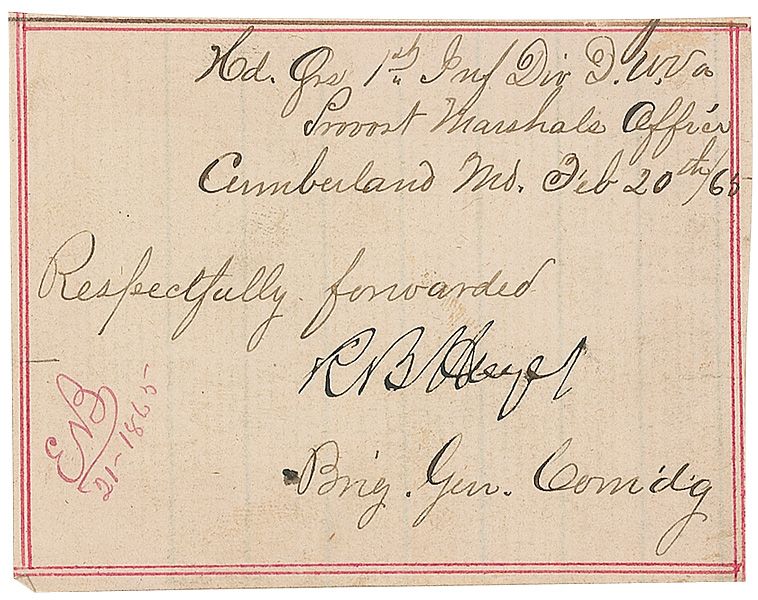 Hd. Qrs 1st Inf Div D. W. Va
Provost Marshals Office
Cumberland Md. Feb 20th/65
Respectfully forwarded
R B Hayes
Brig. Gen. Comdg
ENB
21-1865